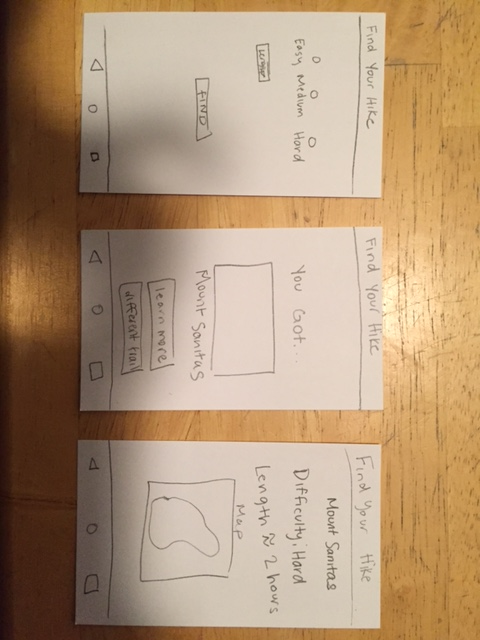 Find Your Hike
Easy Medium Hard
FIND
Find Your Hike
You Got....
Mount Sanitas
learn more
different trail
Find Your Hike
Mount Sanitas
Difficulty: Hard
Length ≈ 2 hours
Map